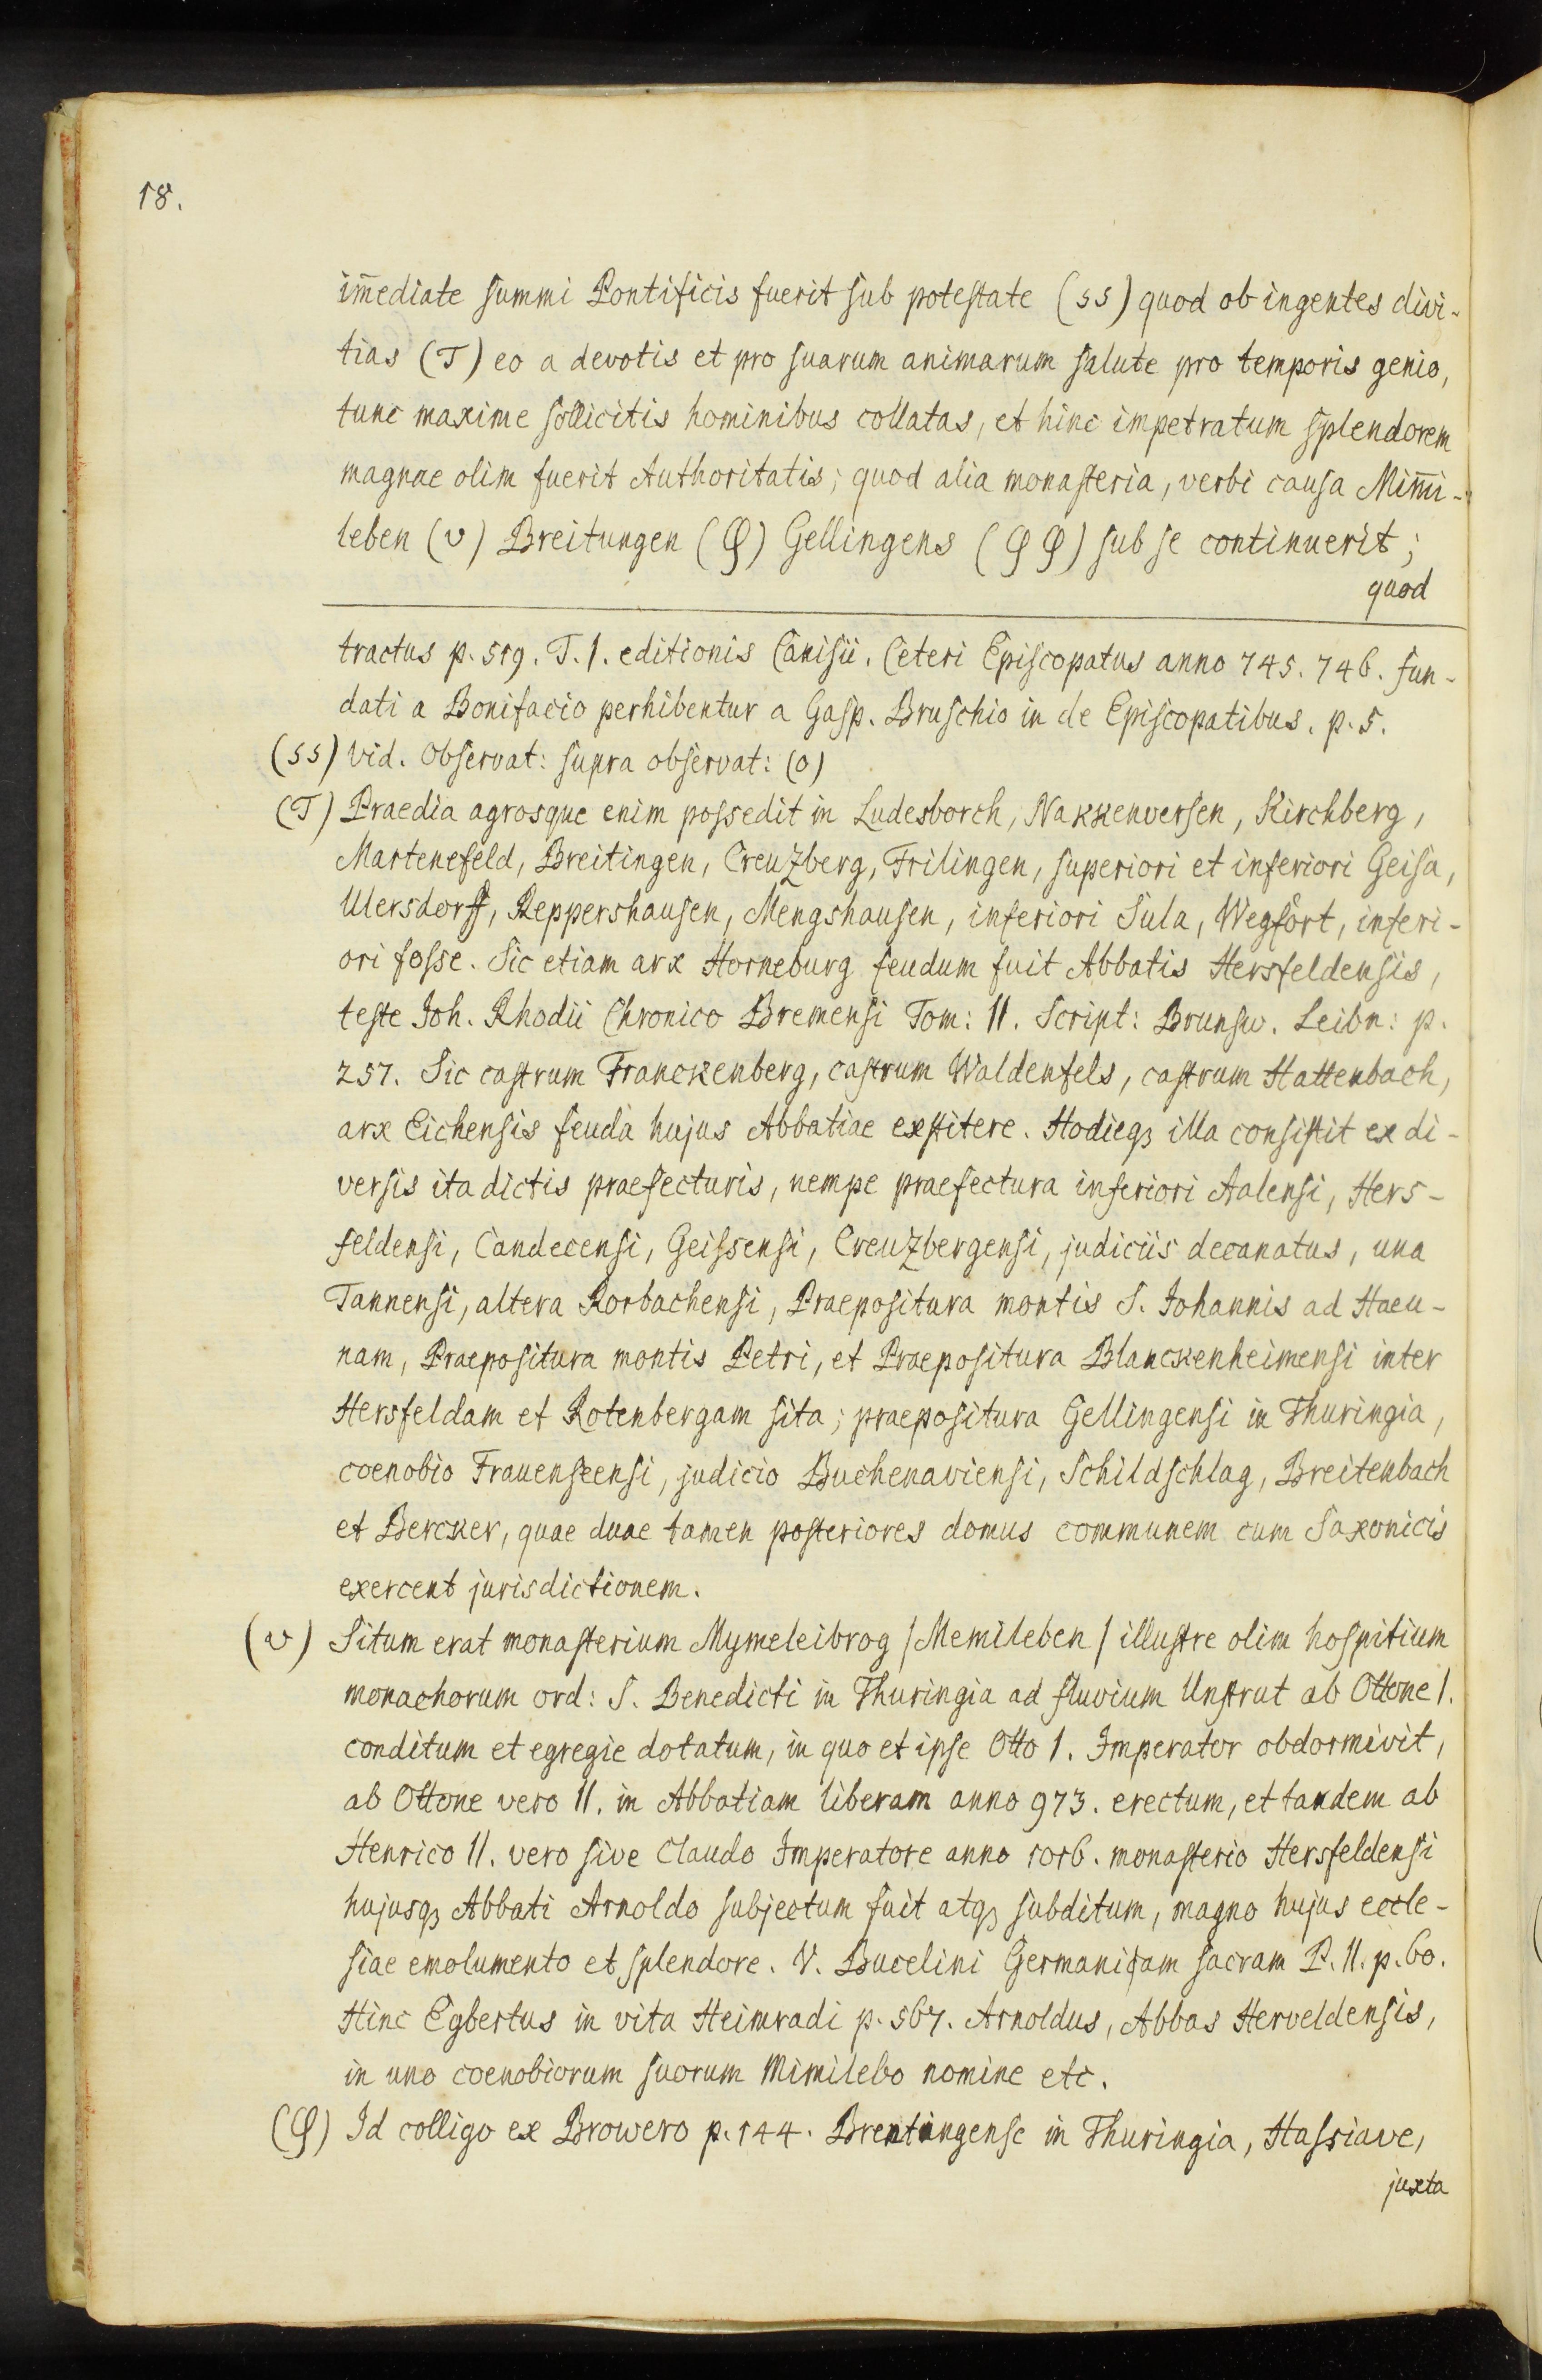 18.
im̅ediate summi Pontificis fuerit sub potestate (ss) quod ob ingentes divi-
tias (T) eo a devotis et pro suarum animarum salute pro temporis genio,
tunc maxime sollicitis hominibus collatas, et hinc impetratum splendorem
magnae olim fuerit Authoritatis; quod alia monasteria, verbi causa Mim̅i-
leben (υ) Breitungen (φ) Gellingens (φφ) sub se continuerit;
quod
tractus p. 519. T. 1. editionis Canisii. Ceteri Episcopatus anno 745. 746. fun-
dati a Bonifacio perhibentur a Gasp. Bruschio in de Episcopatibus. p. 5.
(ss) vid. Observat: supra observat: (o)
(T) Praedia agrosque enim possedit in Ludesborch, Nakkenversen, Kirchberg,
Martenefeld, Breitingen, Creuzberg, Frilingen, superiori et inferiori Geisa,
Ulersdorff, Reppershausen, Mengshausen, inferiori Sula, Wegfort, inferi-
ori fosse. Sic etiam arx Horneburg feudum fuit Abbatis Hersfeldensis,
teste Joh. Rhodii Chronico Bremensi Tom: II. Script: Brunsw. Leibn: p.
257. Sic castrum Franckenberg, castrum Waldenfels, castrum Hattenbach,
arx Eichensis feuda hujus Abbatiae exstitere. Hodieqꝫ illa consistit ex di-
versis ita dictis praefecturis, nempe praefectura inferiori Aalensi, Hers-
feldensi, Candecensi, Geissensi, Creuzbergensi, judiciis decanatus, una
Tannensi, altera Rorbachensi, Praepositura montis S. Johannis ad Haeu-
nam, Praepositura montis Petri, et Praepositura Blanckenheimensi inter
Hersfeldam et Rotenbergam sita; praepositura Gellingensi in Thuringia,
coenobio Frauenseensi, judicio Buchenaviensi, Schildschlag, Breitenbach
et Bercker, quae duae tamen posteriores domus communem cum Saxonicis
exercent jurisdictionem.
(υ) Situm erat monasterium Mymeleibrog /Memileben/ illustre olim hospitium
monachorum ord: S. Benedicti in Thuringia ad fluvium Unstrut ab Ottone I.
conditum et egregie dotatum, in quo et ipse Otto I. Imperator obdormivit,
ab Ottone vero II. in Abbatiam liberam anno 973. erectum, et tandem ab
Henrico II. vero sive Claudo Imperatore anno 1016. monasterio Hersfeldensi
hujusqꝫ Abbati Arnoldo subjectum fuit atqꝫ subditum, magno hujus eccle-
siae emolumento et splendore. V. Bucelini Germanicam sacram P. II. p. 60.
Hinc Egbertus in vita Heimradi p. 567. Arnoldus, Abbas Herveldensis,
in uno coenobiorum suorum Mimilebo nomine etc.
(φ) Id colligo ex Browero p. 144. Brentingense in Thuringia, Hassiave,
juxta